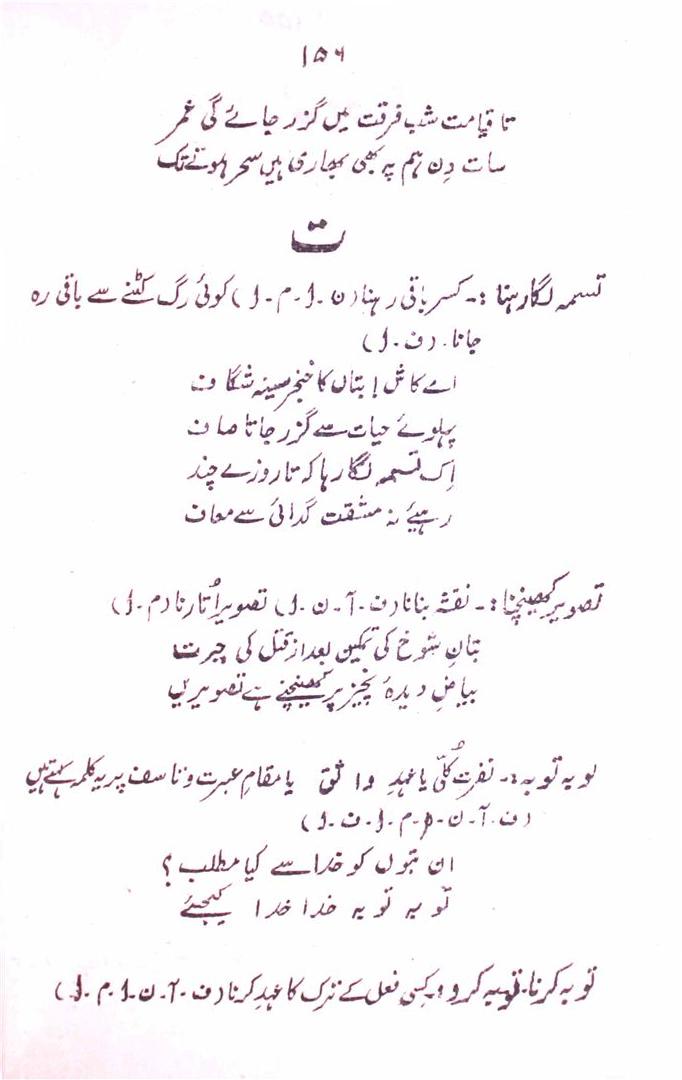 ۱۵۶
تا قیامت شب فرقت میں گزر جائے گی عمر
سات دِن ہم پہ بھی بھاری ہیں سحر ہوتے تک
ت
تسمہ لگا رہنا :۔ کسر باقی رہنا (ن ۔ ا ۔ م ۔ ا) کوئی رگ کٹنے سے باقی رہ
جانا ۔ (ف ۔ ا)
اے کاش ! بتاں کا خنجر سینہ شگاف
پہلوئے حیات سے گزر جاتا صاف
اِک تسمہ لگا رہا کہ تا روزے چند
رہیئے نہ مشقت گدائی سے معاف
تصویر کھینچنا :۔ نقشہ بنانا (ف ۔ آ ۔ ن ۔ ا) تصویر اُتارنا (م ۔ ا)
بتانِ شوخ کی تمکین بعد از قتل کی حیرت
بیاضِ دیدۂ نخچیر پر کھینچے ہے تصویریں
توبہ توبہ :۔ نفرت کُلّی یا عہدِ واثق یا مقامِ عبرت و تاسف پر یہ کلمہ کہتے ہیں
(ف ۔ آ ۔ ن ۔ ا ۔ م ۔ ا ۔ ف ۔ ا)
ان بتوں کو خدا سے کیا مطلب ؟
توبہ توبہ خدا خدا کیجئے
توبہ کرنا ۔ توبہ کرو :۔ کسی فعل کے ترک کا عہد کرنا (ف ۔ آ ۔ ن ۔ ا ۔ م ۔ ا)